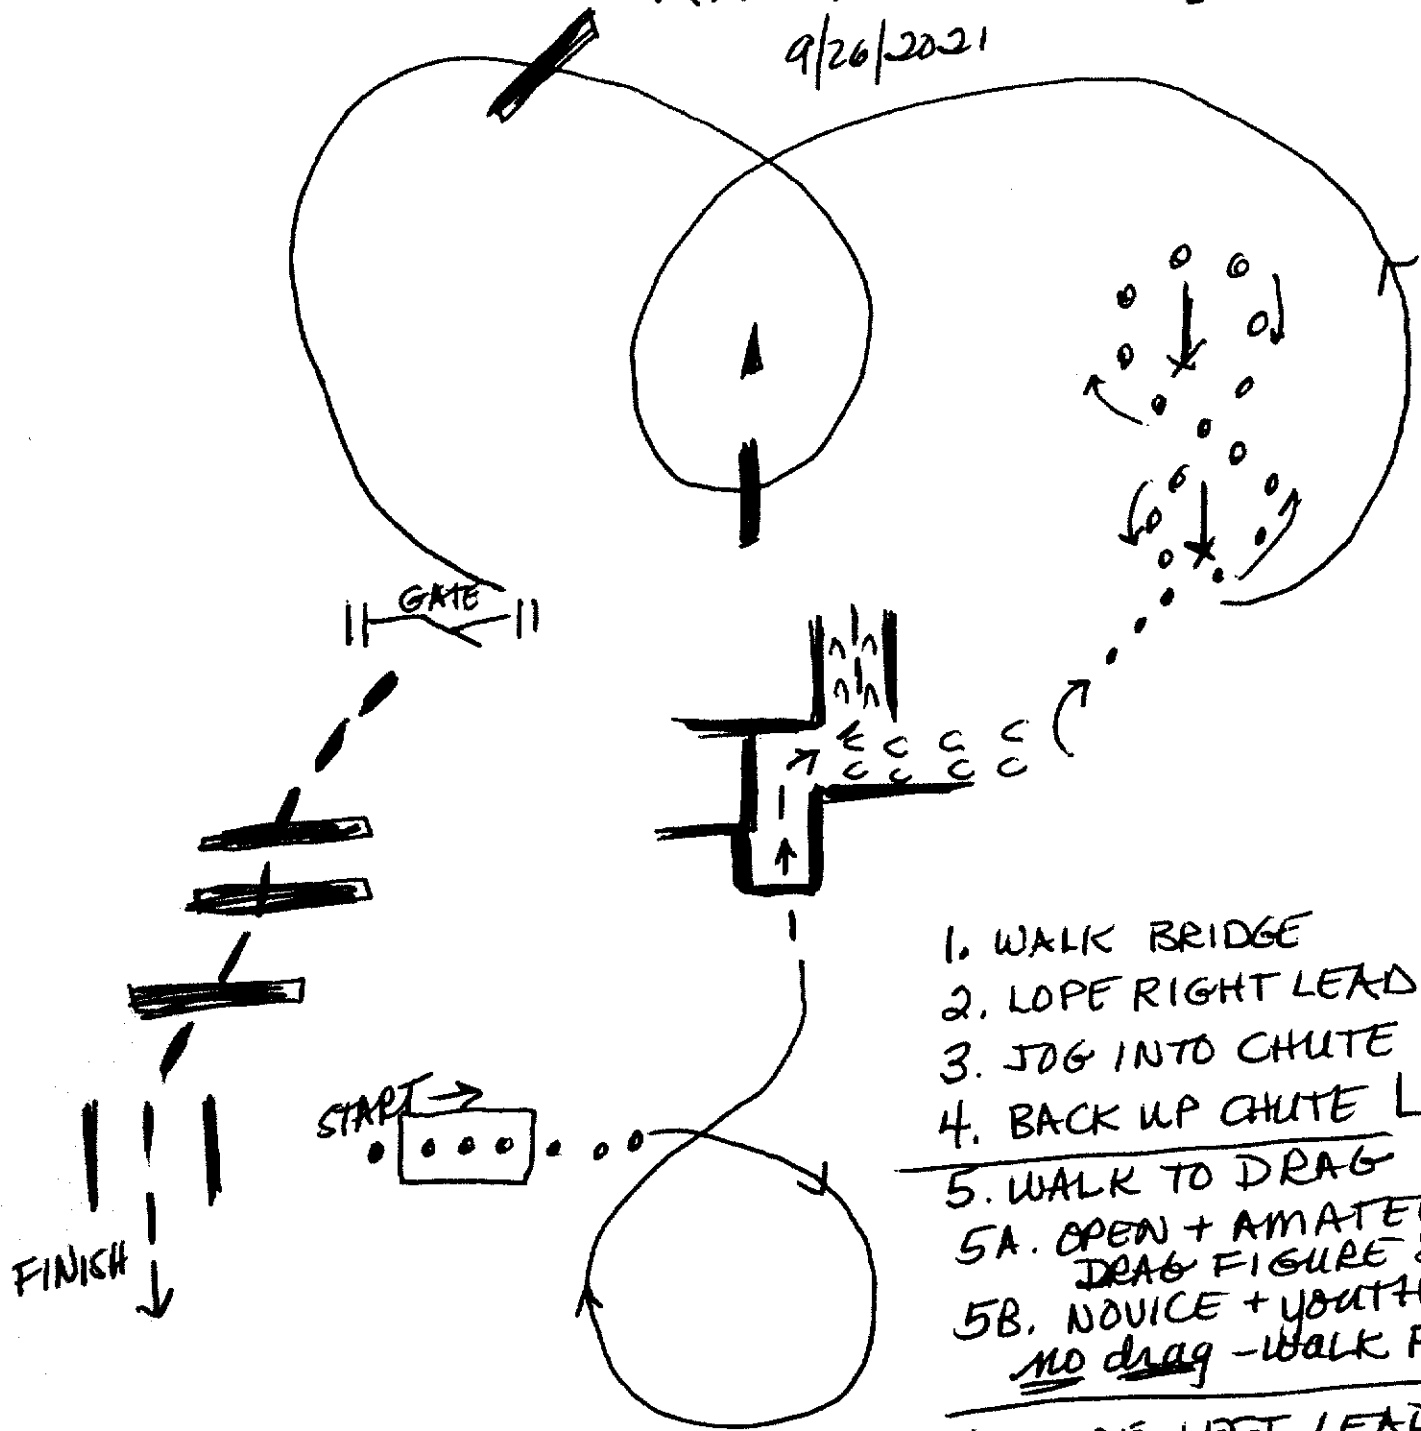 9/26/2021
GATE
START
FINISH
1. WALK BRIDGE
2. LOPE RIGHT LEAD
3. JOG INTO CHUTE
4. BACK UP CHUTE L
5. WALK TO DRAG
5A. OPEN + AMATE
DRAG FIGURE
5B. NOVICE + YOUTH
no drag - WALK
LEFT LEAD